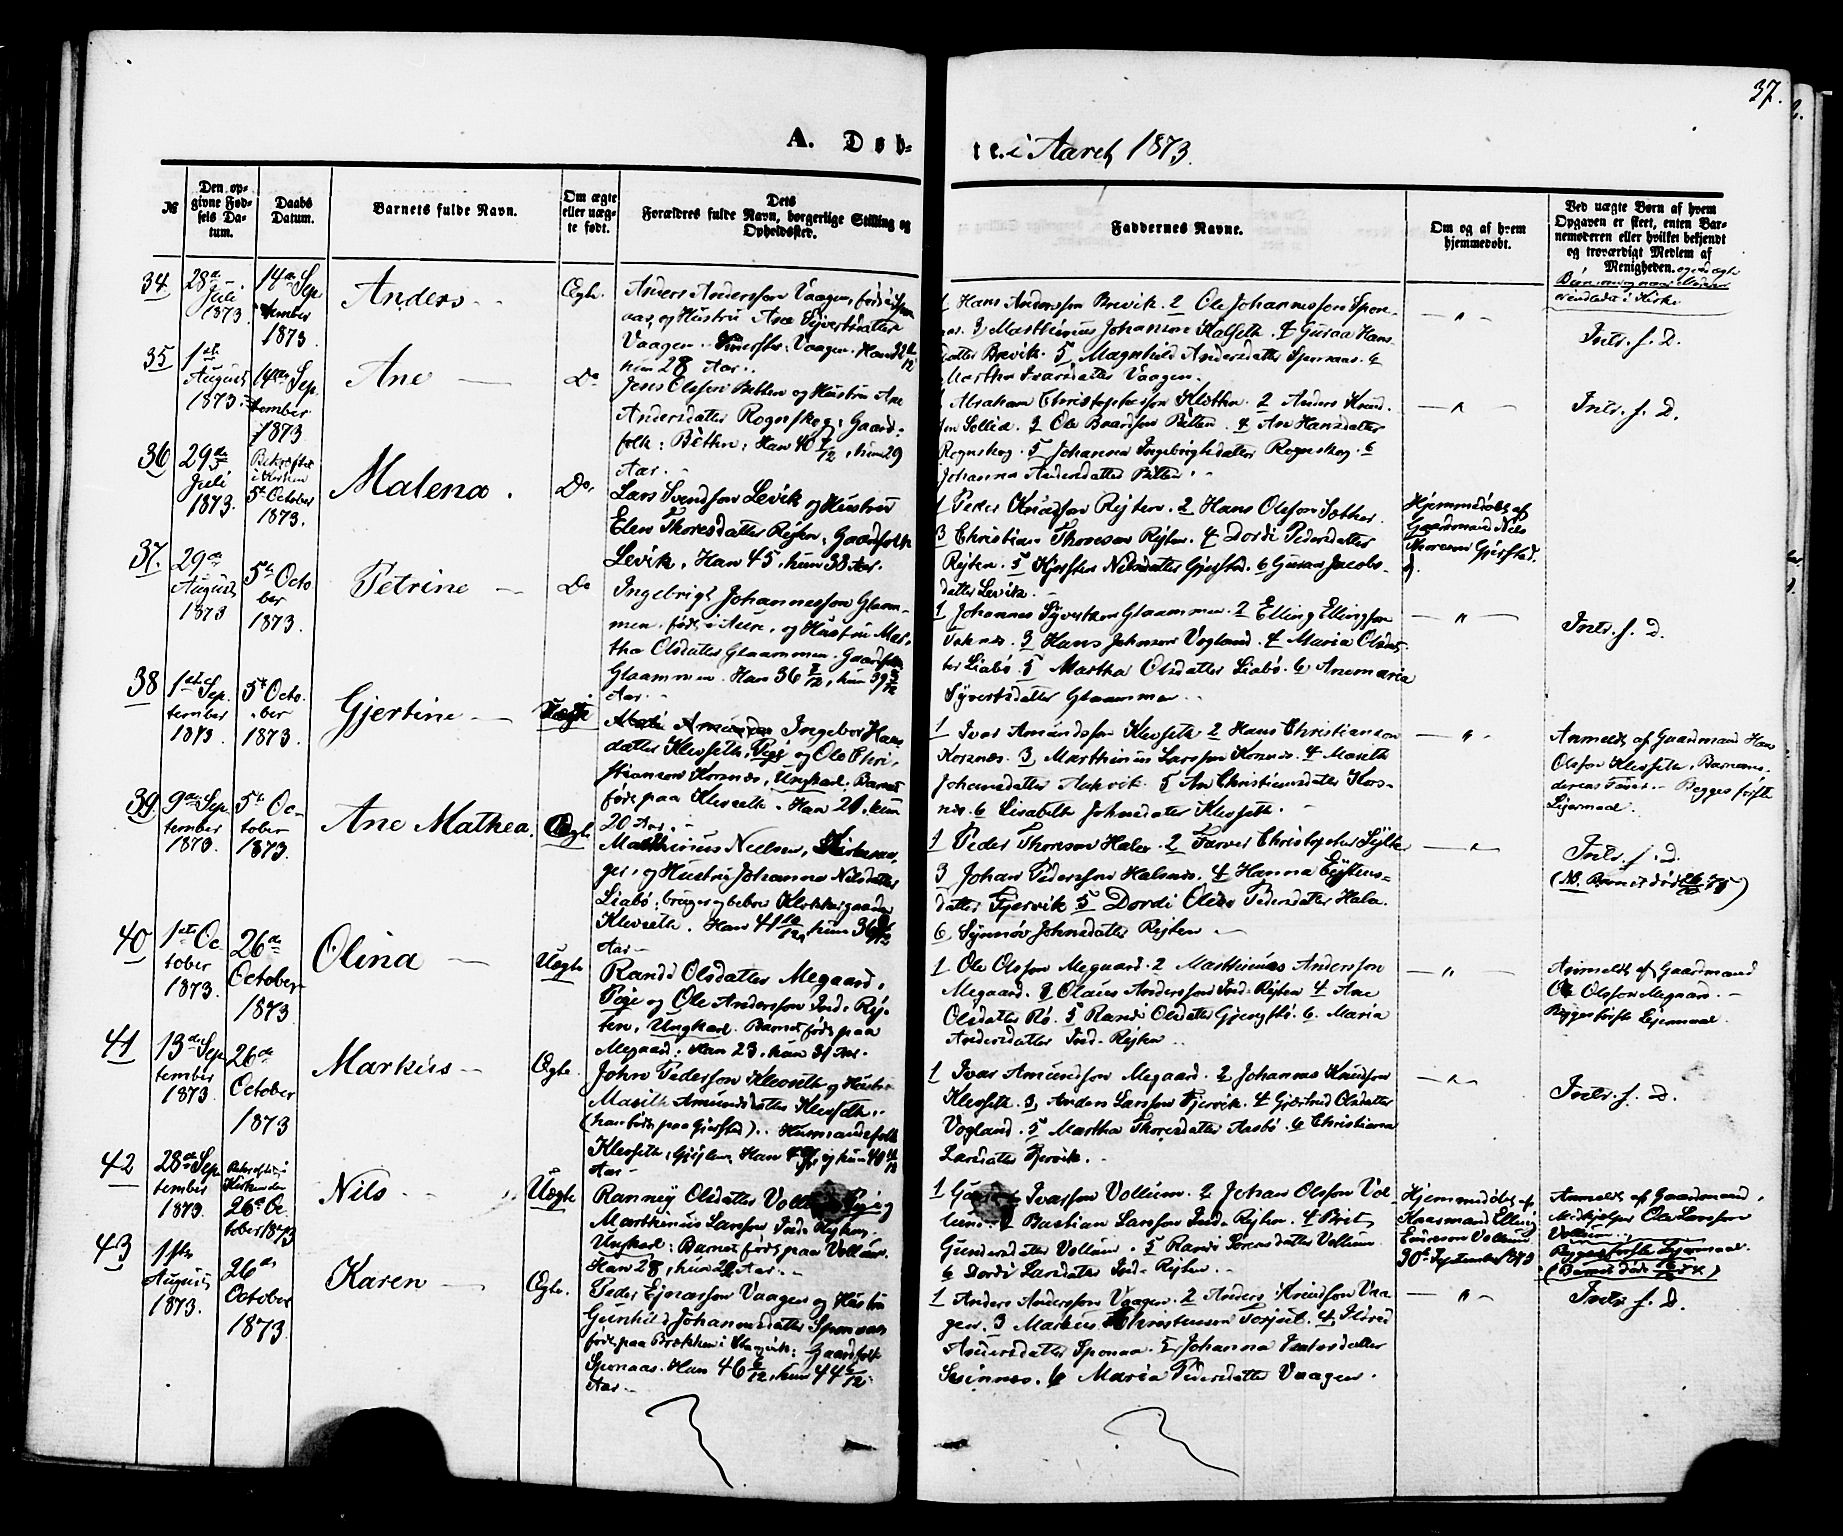 37.
A. Døb-
te. i Aaret 1873.
№
Den opgivne Fødsels Datum.
Daabs Datum.
Barnets fulde Navn.
Om ægte eller uægte født.
Dets Forældres fulde Navn, borgerlige Stilling og Opholdssted.
Faddernes Navne.
Om og af hvem hjemmedøbt.
Ved uægte Børn af hvem Opgaven er skeet, enten Barnemoderen eller hvilket bekjendt og troværdigt Medlem af Menigheden.
34.
28de Juli 1873.
14de September 1873.
Anders
Ægte.
Anders Andersson Vaagen, født i
og Hustru Ane Syvertsdatter
Vaagen.
hun 28 Aar.
1 Hans Andersson Brevik. 2 Ole Johannesson
3 Marthinus Johannson Halseth. 4 Guraa Hans-
datter Brevik. 5 Magnhild Andersdatter Sponaas. 6
Martha Ivarsdatter Vaagen.
— " —
Intr. f. D.
35
1ste August 1873.
14de September 1873
Ane
Do
Jens Olsson Bitten og Hustru Ane
Andersdatter Rognskog; Gaard-
folk: Bitten: Han 40 7/12, hun 29
Aar.
1 Abraham Christophersson 2 Anders Knud-
son Sollid. 3 Ole Baardson Bitten. 4 An Hansdatter
Rognskog. 5 Johanna Ingebrigtsdatter Rognskog. 6
Johanna Andersdatter Bitten.
— " —
Intr. f. D.
36
29de Juli 1873.
Bekræftet i Kirken 5te October 1873.
Malena.
Do.
Lars Svendson Levik og Hustru
Elen Thoresdatter Rejten, Gaardfolk
Levik. Han 45, hun 38 Aar.
1 Peder Knudson Rejten. 2 Hans Olsson Sæther.
3 Christian Thoreson Rejten. 4 Dordi Pedersdatter
Rejten. 5 Kjersten Nilsdatter Gjerstad. 6 Guraa Jacobs-
datter Levik.
Hjemmedøbt af
Gaardmand Nils
Thoreson Gjerstad.
37.
29de August 1873
5te October 1873.
Petrine
Do
Ingebrigt Johannesson Glaam-
men, født i Aure, og Hustru Mar-
tha Olsdatter Glaammen. Gaardfolk
Glaammen. Han 36 7/12, hun
Aar.
1 Johannes Syvertsen Glaammen. 2 Elling Ellingson
3 Hans Johnson Vogland. 4 Maria Olsdat-
ter Liabø. 5 Martha Olsdatter Liabø. 6 Anemaria
Syvertsdatter Glaammen.
— " —
Intr. f. D.
38
1ste September 1873.
5te October 1873.
Gjertine
Uægte
Ingebor Hans-
datter Klevseth, Pige og Ole Chri-
stianson Korsnæs, Ungkarl. Barnet
født paa Klevseth. Han 21, hun
20 Aar.
1 Ivar Amundson Klevseth 2 Hans Christianson
Korsnæs. 3 Marthinus Larsson Korsnæs. 4 Marith
Johansdatter Aakvik. 5 An Christiansdatter Kors-
næs. 6 Lisabeth Johnsdatter Klevseth.
— " —
Anmeldt af Gaardmand Hans
Olsson Klevseth, Barnemo-
derens Fader. Begges første
Lejermaal.
39
9de September 1873.
5te October 1873.
Ane Mathea.
Ægte.
Marthinus Nielsen, Kirkesan-
ger, og Hustru Johanna Nilsdatter
Liabø; bruger og beboer Klokkergaarden
Klevseth. Han 41 10/12, hun
Aar
1 Peder Thoreson Halse. 2 Farver Christopher Sylte
3 Johan Pederson Halsnæs. 4 Hanna
datter Fjervik 5 Dordi Pedersdatter Halse.
6 Synnøv Johnsdatter Rejten
— " —
Intr. f. D.
(NB. Barnet død )
40
1ste October 1873.
26de October 1873
Olina
Uægte
Randi Olsdatter Megaard,
Pige og Ole Andersson Ind. Rej-
ten, Ungkarl. Barnet født paa
Megaard: Han 23, hun 31 Aar.
1 Ole Olsson Megaard. 2 Marthinus Andersson
Megaard. 3 Olaus Andersson Ind. Rejten 4 Ane
Olsdatter Bø. 5 Randi Olsdatter Gjengstø. 6 Maria
Andersdatter Ind. Rejten
— " —
Anmeldt af Gaardmand
Ole Olsson Megaard.
Begges første Lejermaal
41
13de September 1873.
26de October 1873
Markus
Ægte.
John Pederson Klevseth og Hustru
Marith Amundsdatter Klevseth,
(han født paa Gjerstad). Huusmandsfolk
Klevseth,
Aar
1 Ivar Amundson Megaard. 2 Johannes Knudson
Klevseth. 3 Anders Larsson Fjervik. 4 Gjertrud Olsdatter
Vogland. 5 Martha Thoresdatter Aasbø. 6 Christiana
Larsdatter Fjervik.
— " —
Intr. f. D.
42
28de September 1873.
Bekræftet i Kirken den 26de October 1873
Nils
Uægte
Ranney Olsdatter Vollum Pige og
Marthinus Larsson Ind. Rejten,
Ungkarl: Barnet født paa Vollum.
Han 28, hun Aar.
1 Ivarson Vollum. 2 Johan Olsson Vol-
lum. 3 Bastian Larsson Ind. Rejten. 4 Brit
Gundersdatter Vollum. 5 Randi Vollum
6 Dordi Larsdatter Ind. Rejten
Hjemmedøbt af
Elling
Vollum
30te September 1873
Anmeldt af Gaardmand,
Medhjelper Ole Larsson
Vollum.
Begges første Lejermaal.
(Barnet død )
43
1ste August 1873.
26de October 1873.
Karen
Ægte.
Peder Ejnarson Vaagen og Hustru
Gunhild Johannesdatter Sponaas
født paa Gaardfolk
Sponaas. Han 46 6/12, hun 44 6/12
Aar
1 Anders Andersson Vaagen. 2 Anders Knudson Vaa-
gen. 3 Markus Christianson Torjul. 4
Andersdatter Sponaas. 5 Johanna
Svinnes. 6 Maria Pedersdatter Vaagen.
— " —
Intr. f. D.